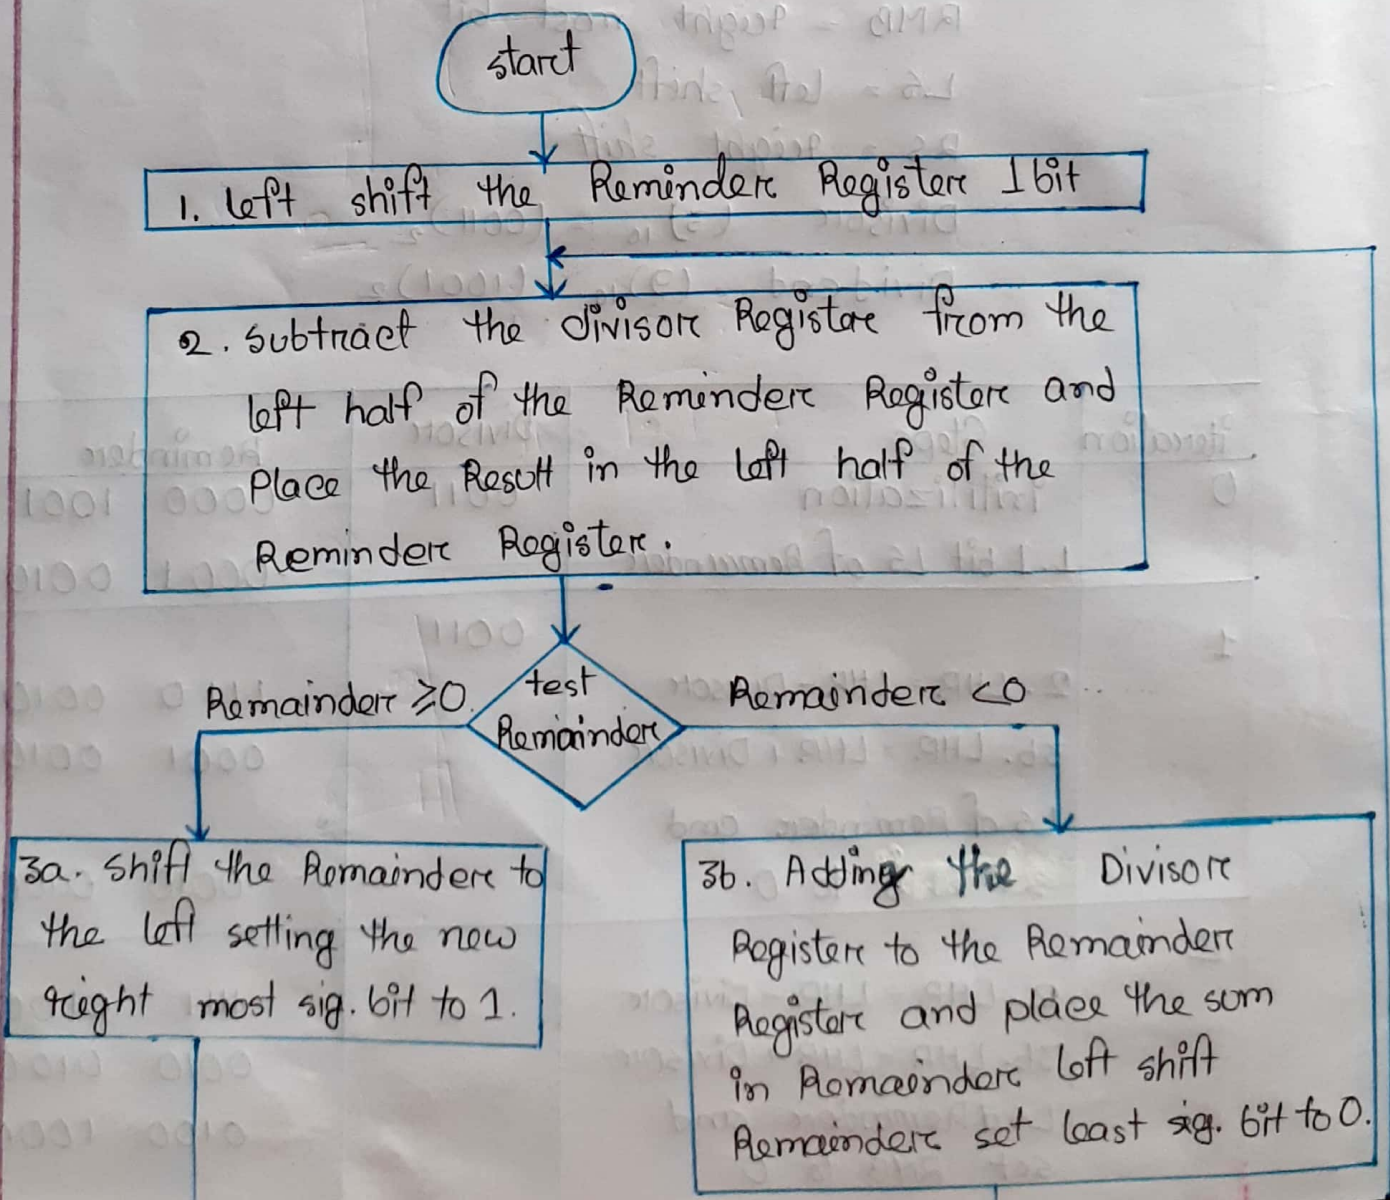 start
1. Left shift the Reminder Register 1 bit
2. Subtract the divisor Register from the
left half of the Reminder Register and
Place the Result in the left half of the
Reminder Register.
Remainder ≥0.
test
Remainder
Remainder <0
3a. Shift the Remainder to
the left setting the new
right most sig. bit to 1.
3b. Adding the Divisor
Register to the Remainder
Register and place the sum
in Remainder left shift
Remainder set least sig. bit to 0.